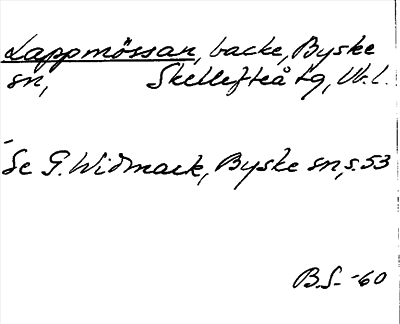 Lappmössan, backe, Byske
sn, Skellefteå tg, Vb.l.
Se G. Widmark, Byske sn, s. 53
B.S. -60